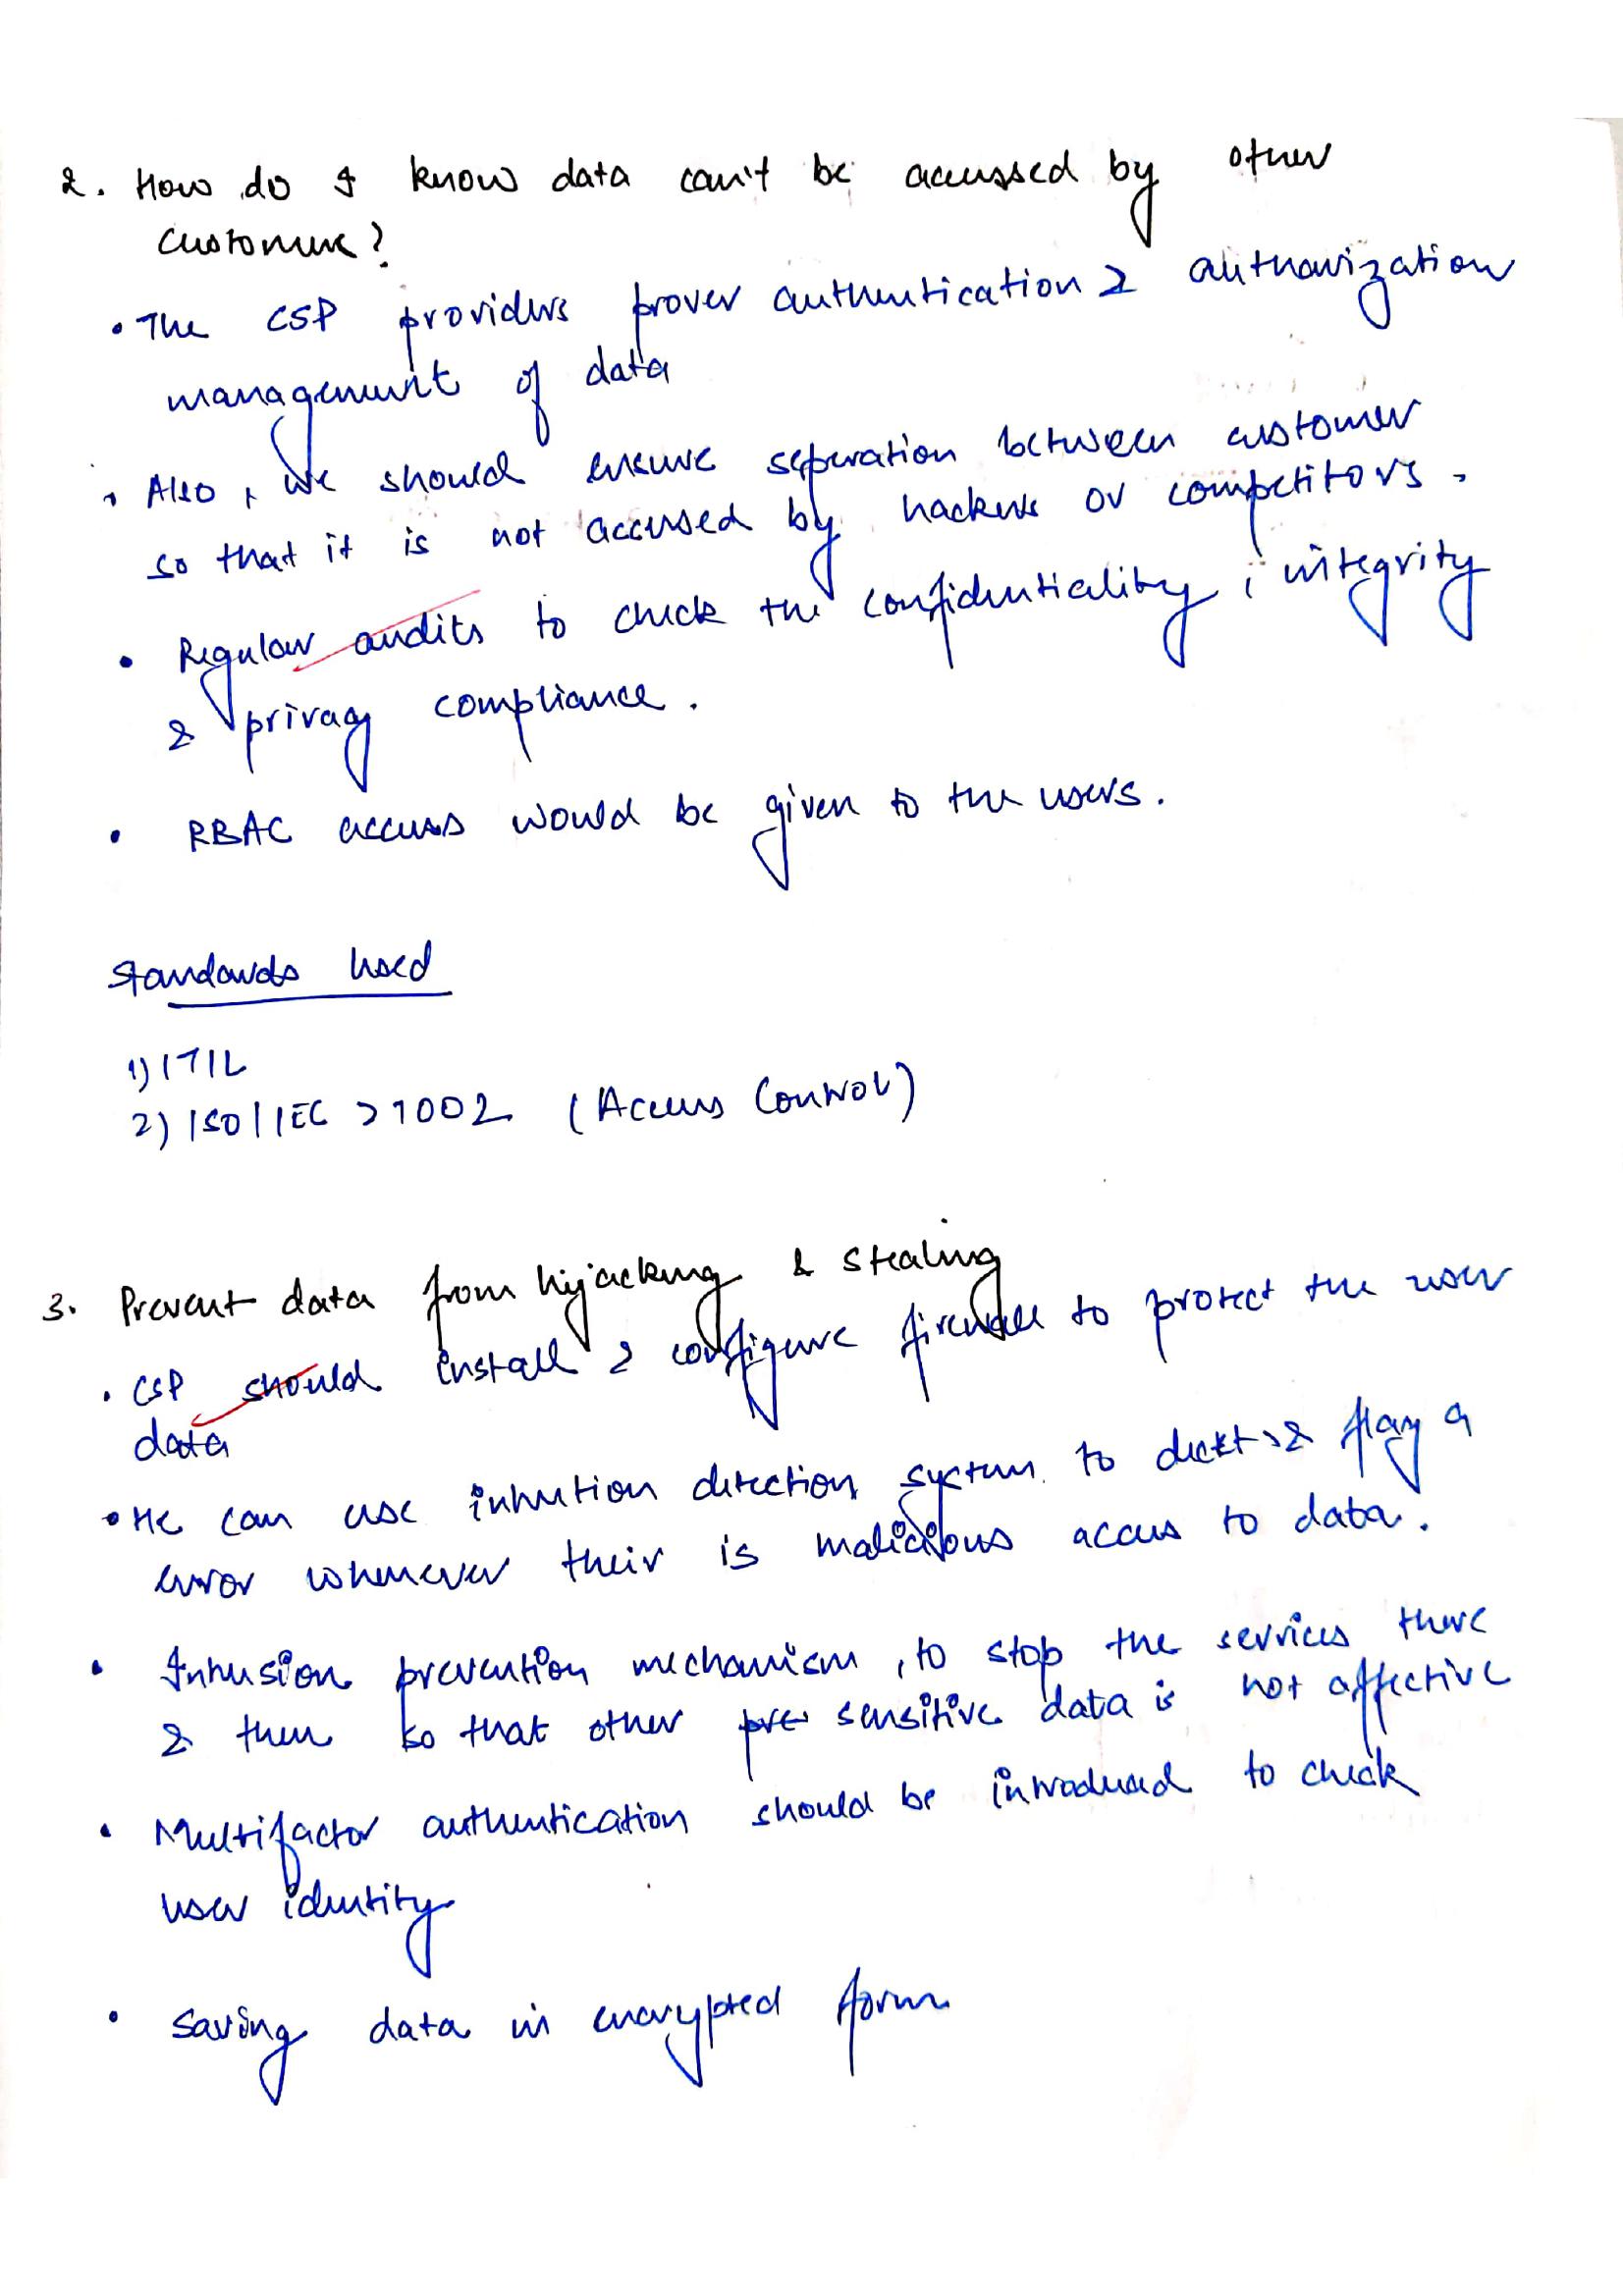 2. How do I know data can't be accessed by other
customer?
• The CSP providers prover authentication & authorization
management of data
• Also, we should ensure seperation between customer
so that it is not accessed by hackers or competitors.
• Regular audits to check the confidentiality, integrity
& privacy compliance.
• RBAC access would be given to the users.
Standards Used
1) ITIL
2) ISO/IEC 27002 (Access Control)
3. Prevent data from hijacking & stealing
• CSP should install & configure firewall to protect the user
data
• He can use detection system to detect & flag a
error whenever their is access to data.
• Intrusion prevention mechanism, to stop the services there
& then so that other sensitive data is not affective
• Multifactor authentication should be introduced to check
user identity
• Saving data in encrypted form